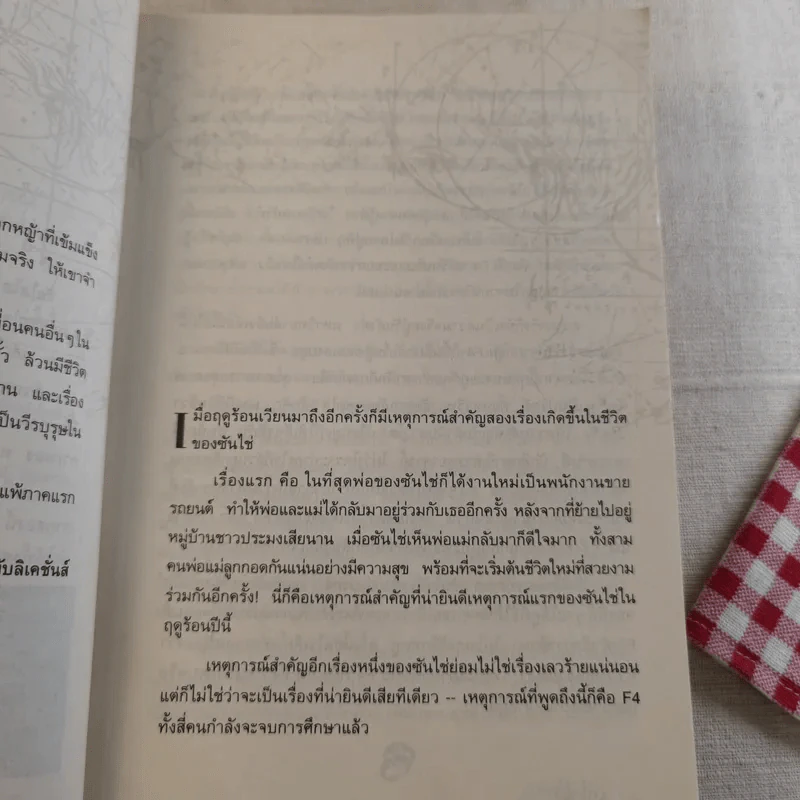 กหญ้าที่เข้มแข็ง
มจริง ให้เขาจำ
พื่อนคนอื่นๆใน
ล้วนมีชีวิต
าน และเรื่อง
ป็นวีรบุรุษใน
แพ้ภาคแรก
บลิเคชั่นส์
เมื่อฤดูร้อนเวียนมาถึงอีกครั้งก็มีเหตุการณ์สำคัญสองเรื่องเกิดขึ้นในชีวิต
ของซันไช่
เรื่องแรก คือ ในที่สุดพ่อของซันไช่ก็ได้งานใหม่เป็นพนักงานขาย
รถยนต์ ทำให้พ่อและแม่ได้กลับมาอยู่ร่วมกับเธออีกครั้ง หลังจากที่ย้ายไปอยู่
หมู่บ้านชาวประมงเสียนาน เมื่อซันไช่เห็นพ่อแม่กลับมาก็ดีใจมาก ทั้งสาม
คนพ่อแม่ลูกกอดกันแน่นอย่างมีความสุข พร้อมที่จะเริ่มต้นชีวิตใหม่ที่สวยงาม
ร่วมกันอีกครั้ง! นี่ก็คือเหตุการณ์สำคัญที่น่ายินดีเหตุการณ์แรกของซันไช่ใน
ฤดูร้อนปีนี้
เหตุการณ์สำคัญอีกเรื่องหนึ่งของซันไช่ย่อมไม่ใช่เรื่องเลวร้ายแน่นอน
แต่ก็ไม่ใช่ว่าจะเป็นเรื่องที่น่ายินดีเสียทีเดียว -- เหตุการณ์ที่พูดถึงนี้ก็คือ F4
ทั้งสี่คนกำลังจะจบการศึกษาแล้ว